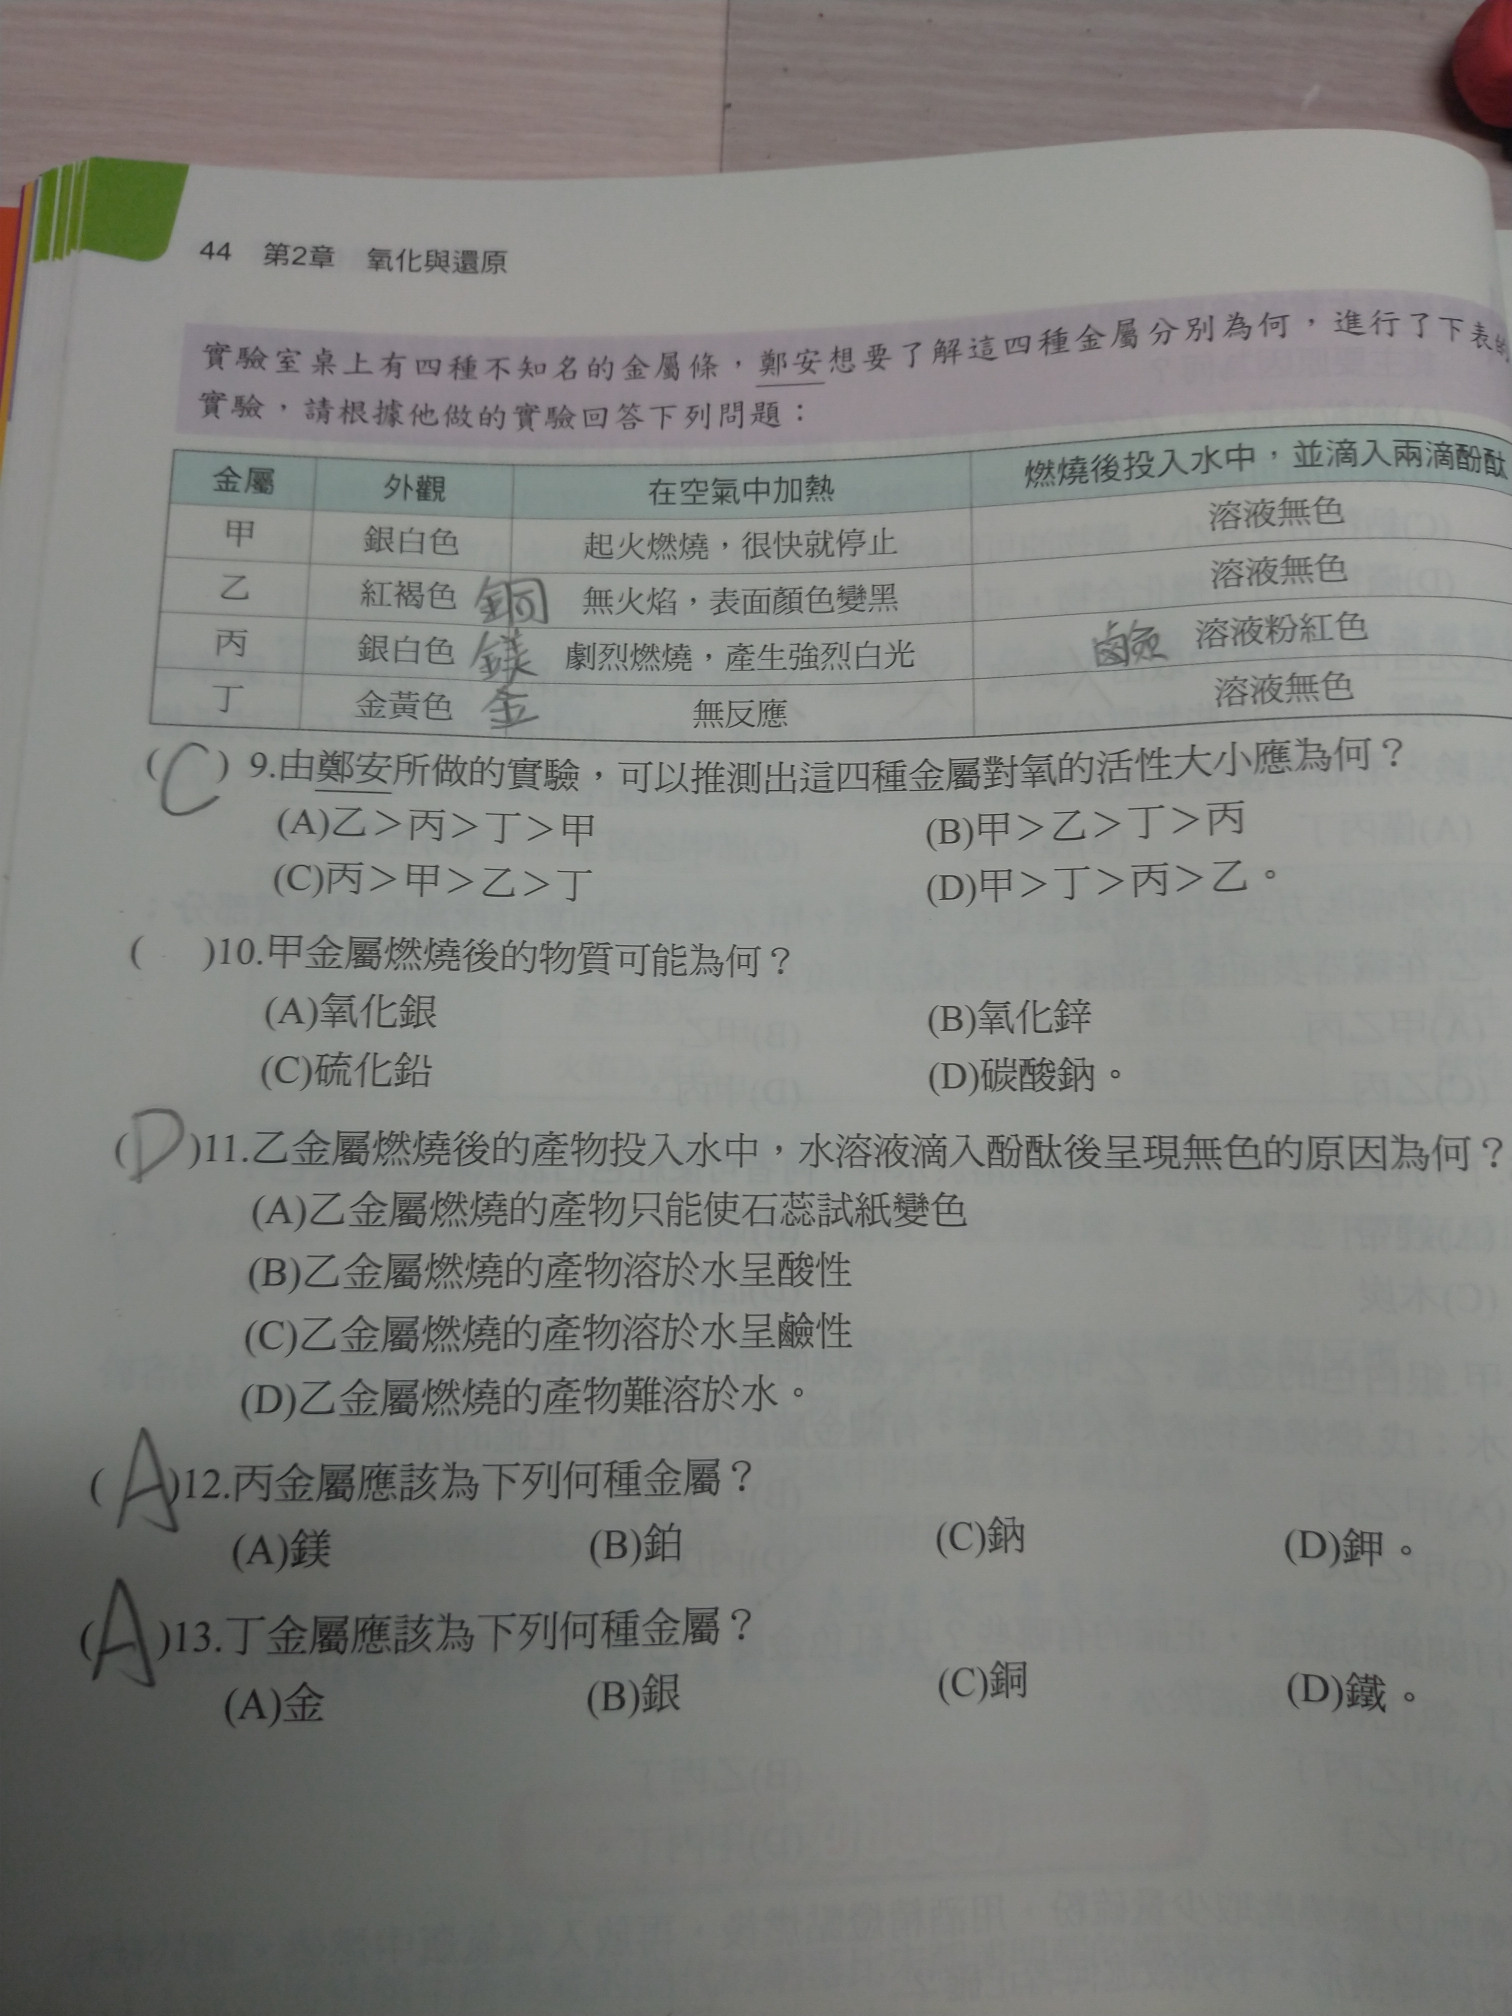 44 第2章 氧化與還原
實驗室桌上有四種不知名的金屬條，鄭安想要了解這四種金屬分別為何，進行了下表的
實驗，請根據他做的實驗回答下列問題：
金屬 外觀 在空氣中加熱 燃燒後投入水中，並滴入兩滴酚酞
甲 銀白色 起火燃燒，很快就停止 溶液無色
乙 紅褐色 銅 無火焰，表面顏色變黑 溶液無色
丙 銀白色 鎂 劇烈燃燒，產生強烈白光 溶液粉紅色
丁 金黃色 金 無反應 溶液無色
(C) 9.由鄭安所做的實驗，可以推測出這四種金屬對氧的活性大小應為何？
(A)乙＞丙＞丁＞甲 (B)甲＞乙＞丁＞丙
(C)丙＞甲＞乙＞丁 (D)甲＞丁＞丙＞乙。
( )10.甲金屬燃燒後的物質可能為何？
(A)氧化銀 (B)氧化鋅
(C)硫化鉛 (D)碳酸鈉。
(D)11.乙金屬燃燒後的產物投入水中，水溶液滴入酚酞後呈現無色的原因為何？
(A)乙金屬燃燒的產物只能使石蕊試紙變色
(B)乙金屬燃燒的產物溶於水呈酸性
(C)乙金屬燃燒的產物溶於水呈鹼性
(D)乙金屬燃燒的產物難溶於水。
(A)12.丙金屬應該為下列何種金屬？
(A)鎂 (B)鉑 (C)鈉 (D)鉀。
(A)13.丁金屬應該為下列何種金屬？
(A)金 (B)銀 (C)銅 (D)鐵。